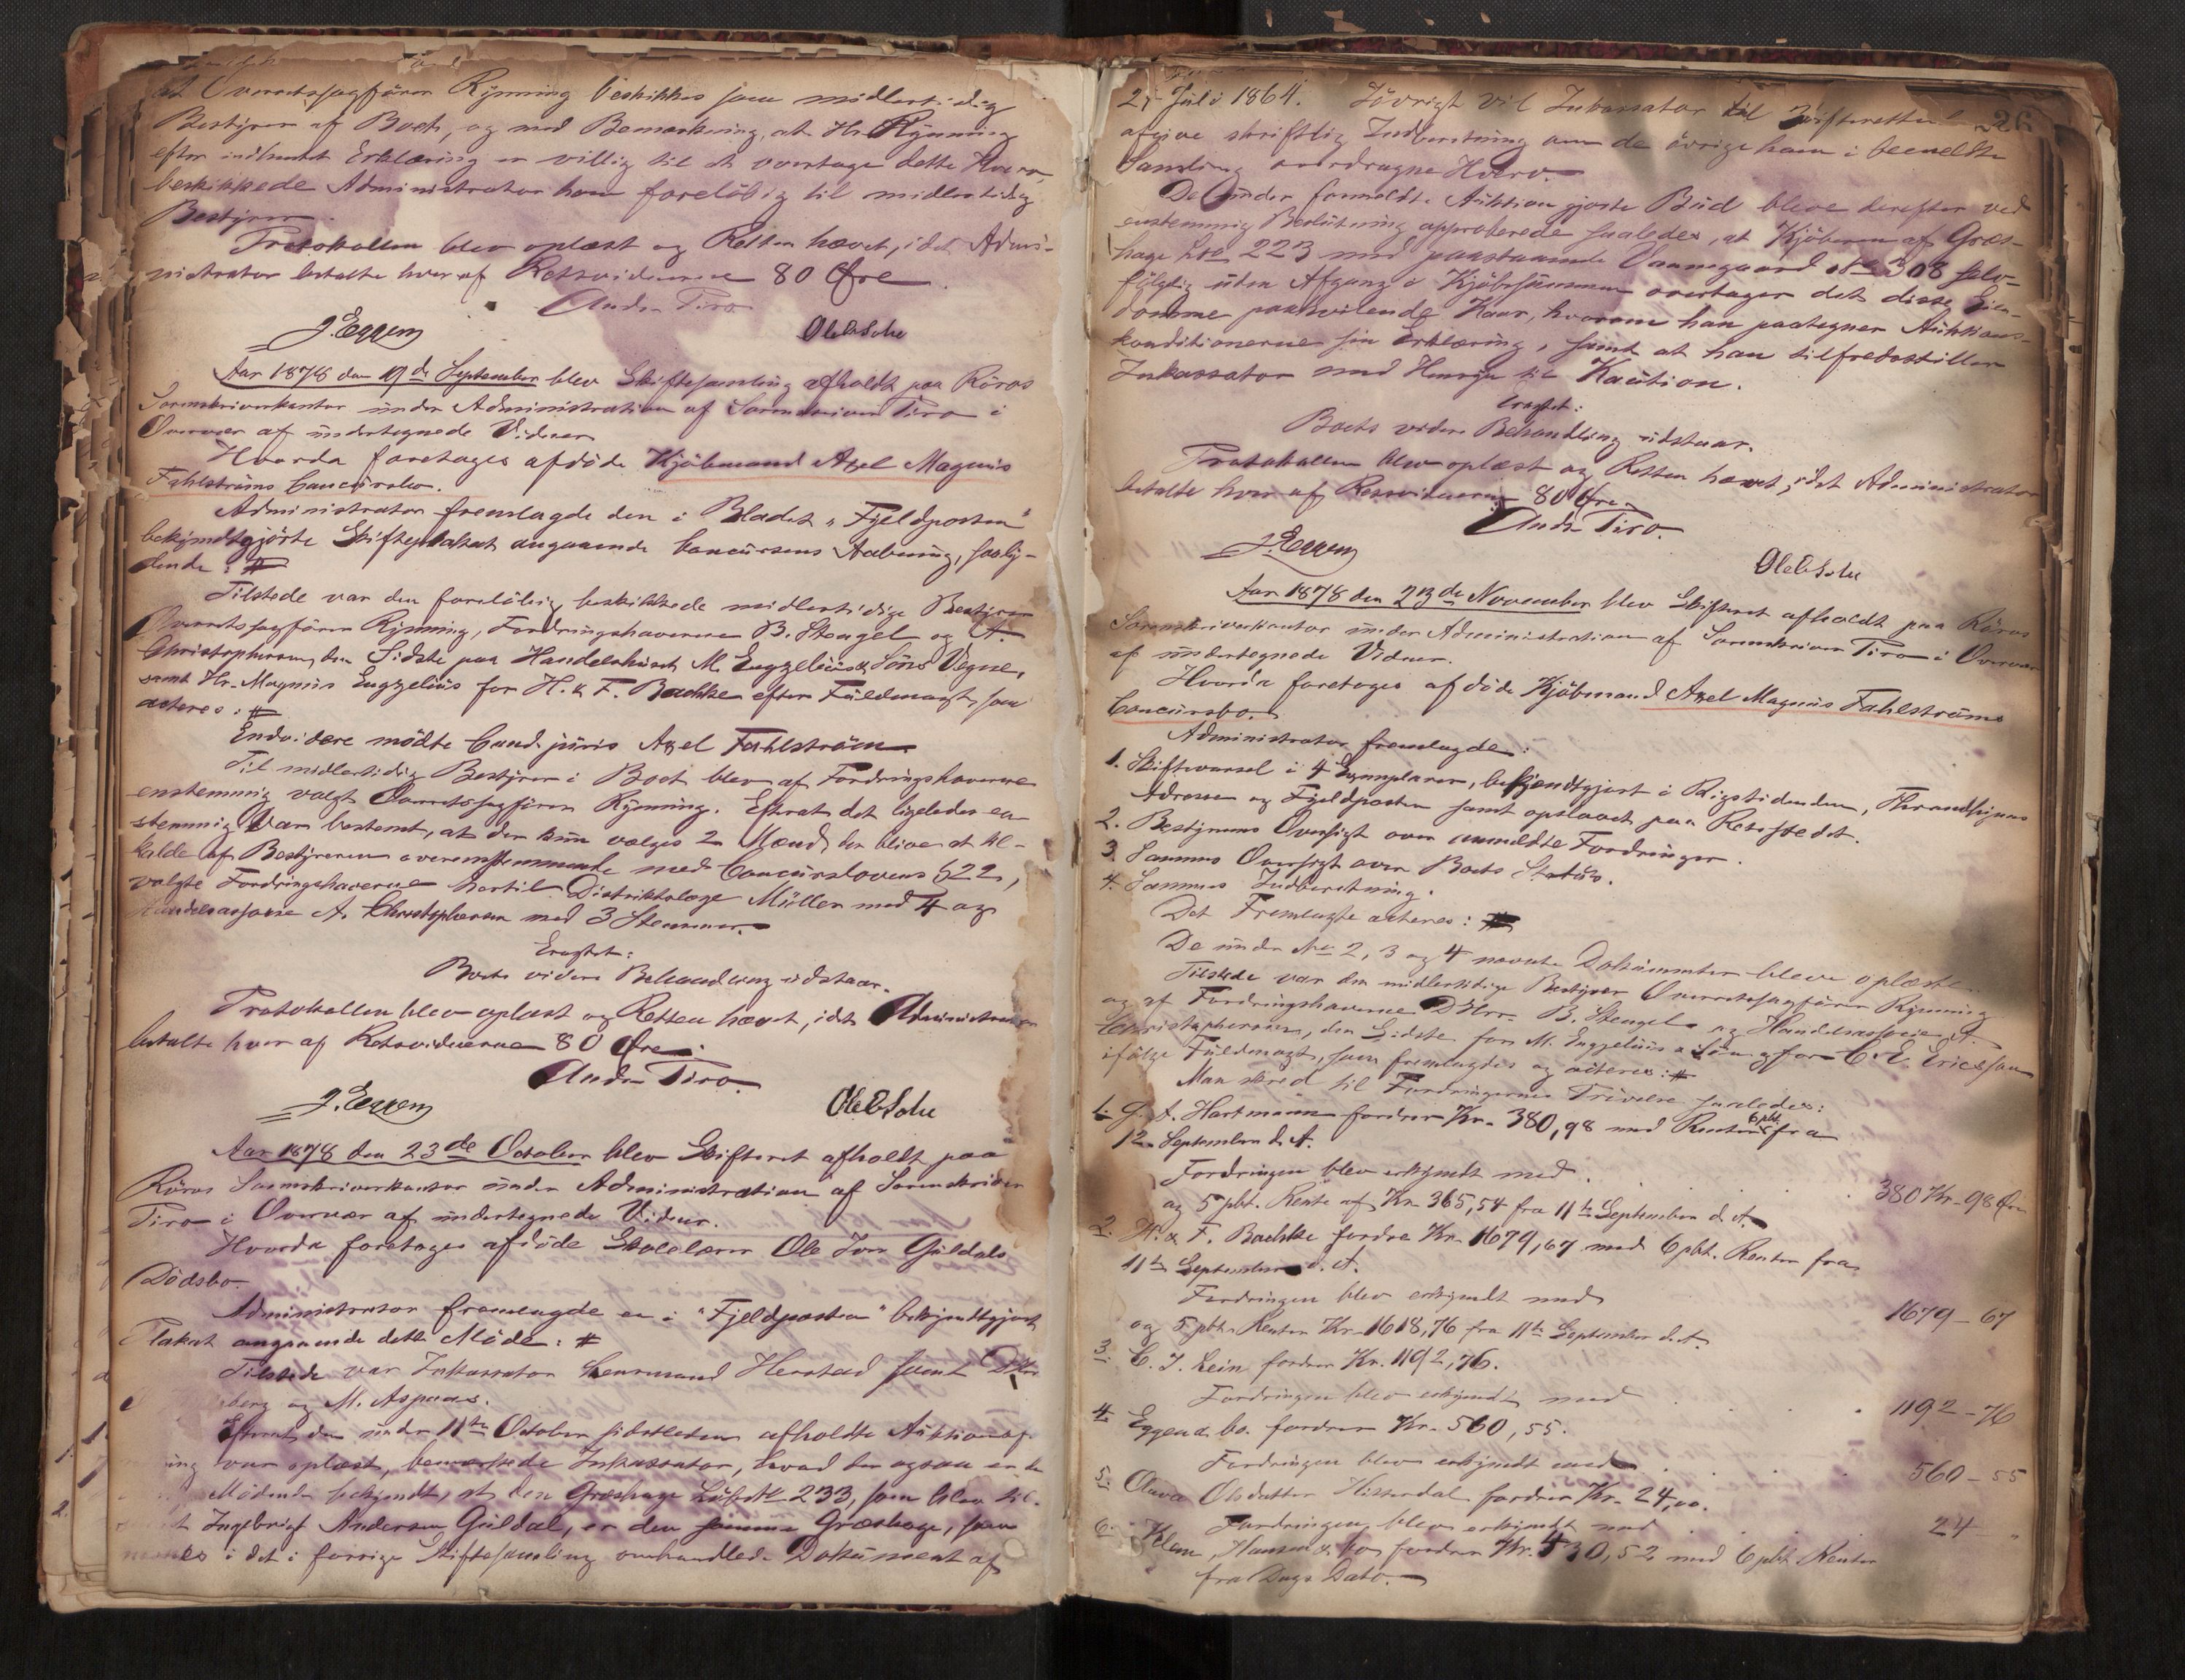 at Overretssagfører Rynning beskikkes som midlertidig
Bestyrer af Boet, og med Bemærkning, at Hr. Rynning
efter indhentet Erklæring er villig til at overtage dette Hverv,
beskikkede Administrator ham foreløbig til midlertidig
Bestyrer.
Protokollen blev oplæst og Retten hævet, idet Admi-
nistrator betalte hver af Retsvidnerne 80 Øre.
Andr. Tiro
J. Eggen OleESohn
Aar 1878 den 19de September blev Skiftesamling afholdt paa Röros
Sorenskriverkontor under Administration af Sorenskriver Tiro i
Overvær af undertegnede Vidner
Hvorda foretoges afdöde Kjöbmand Axel Magnus
Fahlströms Concursbo.
Administrator fremlagde den i Bladet "Fjeldposten"
bekjendtgjörte Skifteplakat angaaende Concursens Aabning, saaly-
dende: #
Tilstede var den foreløbig beskikkede midlertidige Bestyrer
Overretssagförer Rynning, Fordringshaverne B. Stengel og A.
Christophersen, den Sidste paa Handelshuset M. Engzelius & Söns Vegne,
samt Hr. Magnus Engzelius for H. & F. Bachke efter Fuldmagt, som
acteres: #
Endvidere mödte Cand. juris Axel Fahlström
Til midlertidig Bestyrer i Boet blev af Fordringshaverne
enstemmig valgt Overretssagförer Rynning. Efterat det ligeledes en-
stemmig var bestemt, at der kun vælges 2 Mænd, der blive at til-
kalde af Bestyreren overensstemmende med Concurslovens § 22,
valgte Fordringshaverne hertil Distriktslæge Müller med 4 og
Handelsassosie A. Christophersen med 3 Stemmer.
Eragtet:
Boets videre Behandling udstaar.
Protokollen blev oplæst og Retten hævet, idet Administrator
betalte hver af Retsvidnerne 80 Øre.
Andr. Tiro.
J. Eggen OleESohn
Aar 1878 den 23de October blev Skifteret afholdt paa
Röros Sorenskriverkontor under Administration af Sorenskriver
Tiro i Overvær af undertegnede Vidner.
Hvorda foretoges afdöde Skolelærer Ole Jon Guldals
Dödsbo.
Administrator fremlagde en i "Fjeldposten" bekjendtgjort
Plakat angaaende dette Möde: #
Tilstede var Inkassator Lensmand Herstad samt DHrr
berg og M. Aspaas.
Efterat den under 11te October sidstleden afholdte Auktionsfor-
ing var oplæst, bemærkede Inkassator, hvad der ogsaa er de
Mödende bekjendt, at den Græshage Löbe No 233, som blev til-
Ingebrigt Andersen Guldal, er den samme Græshage, som
i det i forrige Skiftesamling omhandlede Dokument af
226
25 Juli 1864. Iövrigt vil Inkassator til Skifteretten
afgive skriftlig Indberetning om de övrige ham i bemeldte
Samling overdragne Hverv.
De under formeldte Auktion gjorte Bud bleve derefter ved
enstemmig Beslutning approberede saaledes, at Kjöberen af Græs-
hage No 223 med paastaaende Vaaningsgaard No 308 selv-
fölgelig uden Afgang i Kjöbesummen overtager det disse Eien-
domme paahvilende Kaar, hvorom han paategner Auktions-
konditionerne sin Erklæring, samt at han tilfredsstiller
Inkassator med Hensyn til Kaution.
Eragtet:
Boets videre Behandling udstaar.
Protokollen blev oplæst og Retten hævet, idet Administrator
betalte hver af Retsvidnerne 80 Øre.
Andr. Tiro.
J. Eggen OleESohn
Aar 1878 den 23de November blev Skifteret afholdt paa Röros
Sorenskriverkontor under Administration af Sorenskriver Tiro i Overvær
af undertegnede Vidner.
Hvorda foretoges afdöde Kjöbmand Axel Magnus Fahlströms
Concursbo.
Administrator fremlagde:
1. Skiftevarsel i 4 Exemplarer, bekjendtgjort i Rigstidenden, Throndhjems
Adresse og Fjeldposten samt opslaaet paa Retsstedet.
2. Bestyrerens Oversigt over anmeldte Fordringer.
3. Sammes Oversigt over Boets Status.
4. Sammes Indberetning.
Det Fremlagte acteres: #
De under No 2, 3 og 4 nævnte Dokumenter bleve oplæste.
Tilstede var den midlertidige Bestyrer Overretssagförer Rynning
og af Fordringshaverne DHrr. B. Stengel og Handelsassosie A.
Christophersen, den Sidste for M. Engzelius & Sön og for C. E. Ericsson
ifölge Fuldmagt, som fremlagdes og acteres: #
Man skred til Fordringernes Prövelse saaledes:
1. G. A. Hartmann fordrer Kr. 380,98 med Renter 6 pCt. fra
12. September d. A.
Fordringen blev erkjendt med . . . 380 Kr. 98 Øre
og 5 pCt. Rente af Kr. 365,54 fra 11te September d. A.
2. H. & F. Bachke fordrer Kr. 1679,67 med 6 pCt. Renter fra
11te September d. A.
Fordringen blev erkjendt med 1679 – 67
og 5 pCt. Renter Kr. 1618,76 fra 11te September d. A.
3. C. J. Lein fordrer Kr. 1192,76.
Fordringen blev erkjendt med . . . 1192 – 76
4. Eggen & Co. fordrer Kr. 560,55.
Fordringen blev erkjendt med . . . 560 – 55
5. Anna Olsdatter Hitterdal fordrer Kr. 24,00.
Fordringen blev erkjendt med . . . 24 – "
6. Klem, Hansen & Co. fordrer Kr. 430,52 med 6 pCt. Renter
fra Dags Dato.